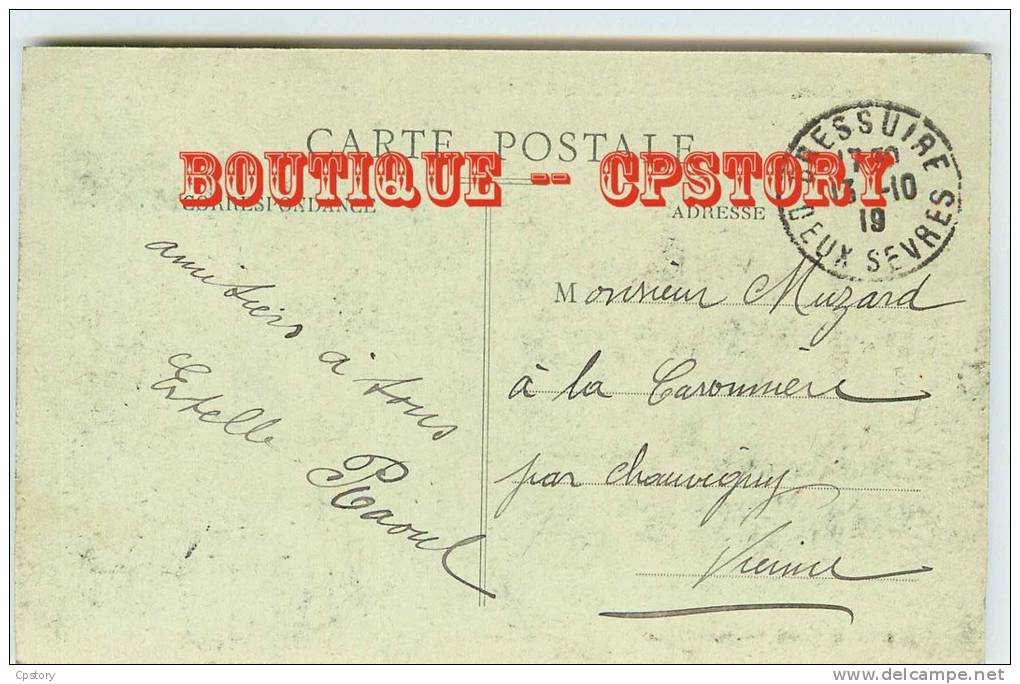 CARTE POSTALE
BOUTIQUE -- CPSTORY
CORRESPONDANCE
ADRESSE
BRESSUIRE
13 -10
19
DEUX SEVRES
amitiers à tous
Estelle
Raoul
Monsieur Muzard
à la Caronnière
par Chauvigny
Vienne
Cpstory
www.delcampe.net